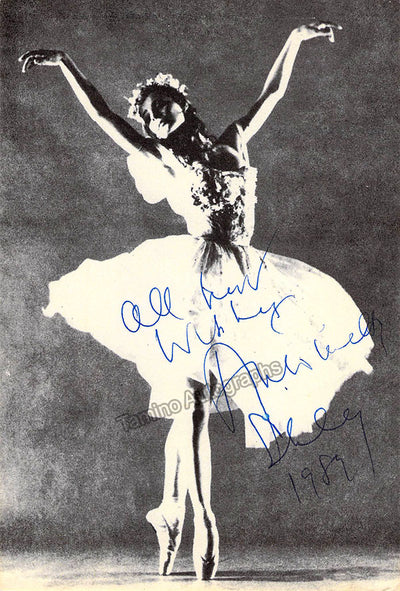 All best
Wishes
Antoinette
Sibley
1989
Tamino Autographs